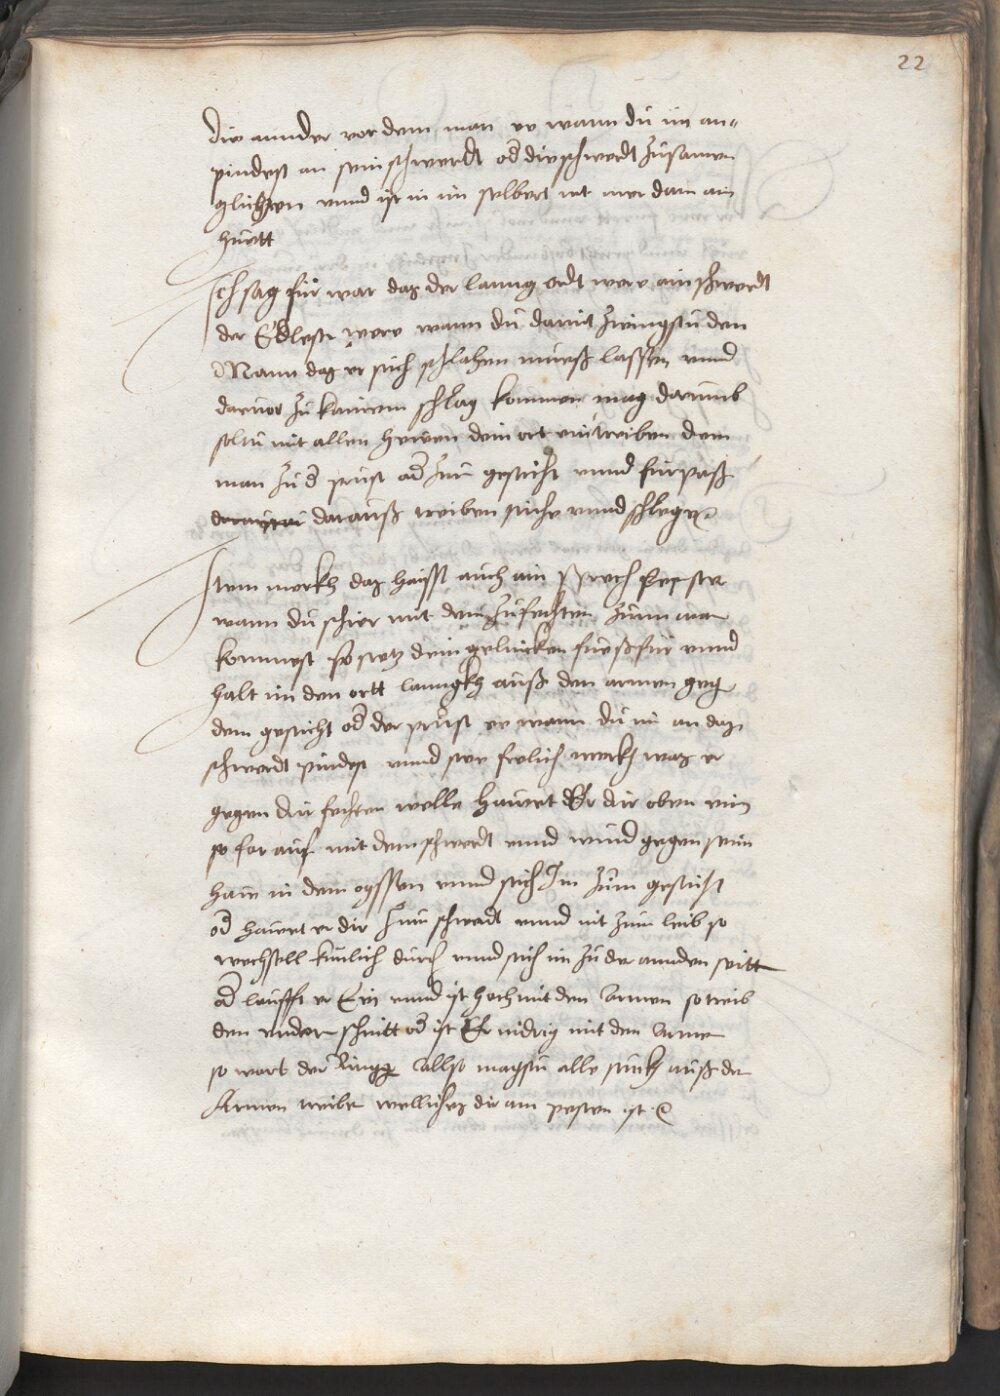 22
die annder vor dem man ee wann du im an¬
pindest an sein schwerdt od die schwerdt zusamen
glitzen vnnd ist in im selbert nit mer dann ain
huett
Ich sag für war daz der lanng ordt were ain schwerdt
der Edlest were wann du damit zwingstu den
Mann daz er sich schlahen mueß lassen vnnd
darnor zu kainem schlag kommen mag darumb
soltu mit allen hewen dein ort eintreiben dem
man zu d prust od zum gesicht vnnd fürpaß
darauß treiben stiche vnnd schlege
Item merkh daz haisst auch ain sprech fenster
wann du schier mit dem zufechten zum man
kommest so setz dein gelincken fueß für vnnd
halt im den ortt lanngkh auß den armen geg
dem gesicht od der prust ee wann du im an daz
schwerdt pindest vnnd stee frelich merkh waz er
gegen dir fechten welle hauert Er dir oben ein
so far auf mit dem schwerdt vnnd wind gegen seim
haw in den ochssen vnnd stich Im zum gesicht
od hauet er dir zum schwerdt vnnd nit zum leib so
wechsell künlich durch vnnd stich im zu der annden seitt
od laufft er Ein vnnd ist hoch mit den Armen so treib
den vnder schnitt od ist Er nidrig mit den Arme
so wart der Ringg Allso magstu alle stuckh auß de
Armen treibe wellichez dir am pesten ist